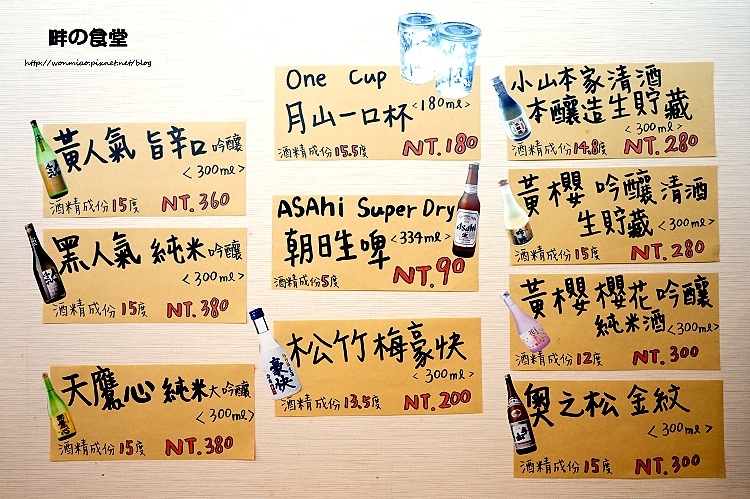 畔の食堂
http://wonmiao.pixnet.net/blog
黃人氣 旨辛口 吟釀
<300ml>
酒精成份15度 NT.360
黑人氣 純米吟釀
<300ml>
酒精成份15度 NT.380
天鷹心 純米大吟釀
<300ml>
酒精成份15度 NT.380
One Cup
<180ml>
月山一口杯
酒精成份15.5度 NT.180
ASAhi Super Dry
朝日生啤 <334ml>
酒精成份5度 NT.90
松竹梅豪快
<300ml>
酒精成份13.5度 NT.200
小山本家清酒
本釀造生貯藏
<300ml>
酒精成份14.8度 NT.280
黃櫻 吟釀清酒
生貯藏 <300ml>
酒精成份15度 NT.280
黃櫻櫻花吟釀
純米酒 <300ml>
酒精成份12度 NT.300
奧之松 金紋
<300ml>
酒精成份15度 NT.300
Asahi
豪快